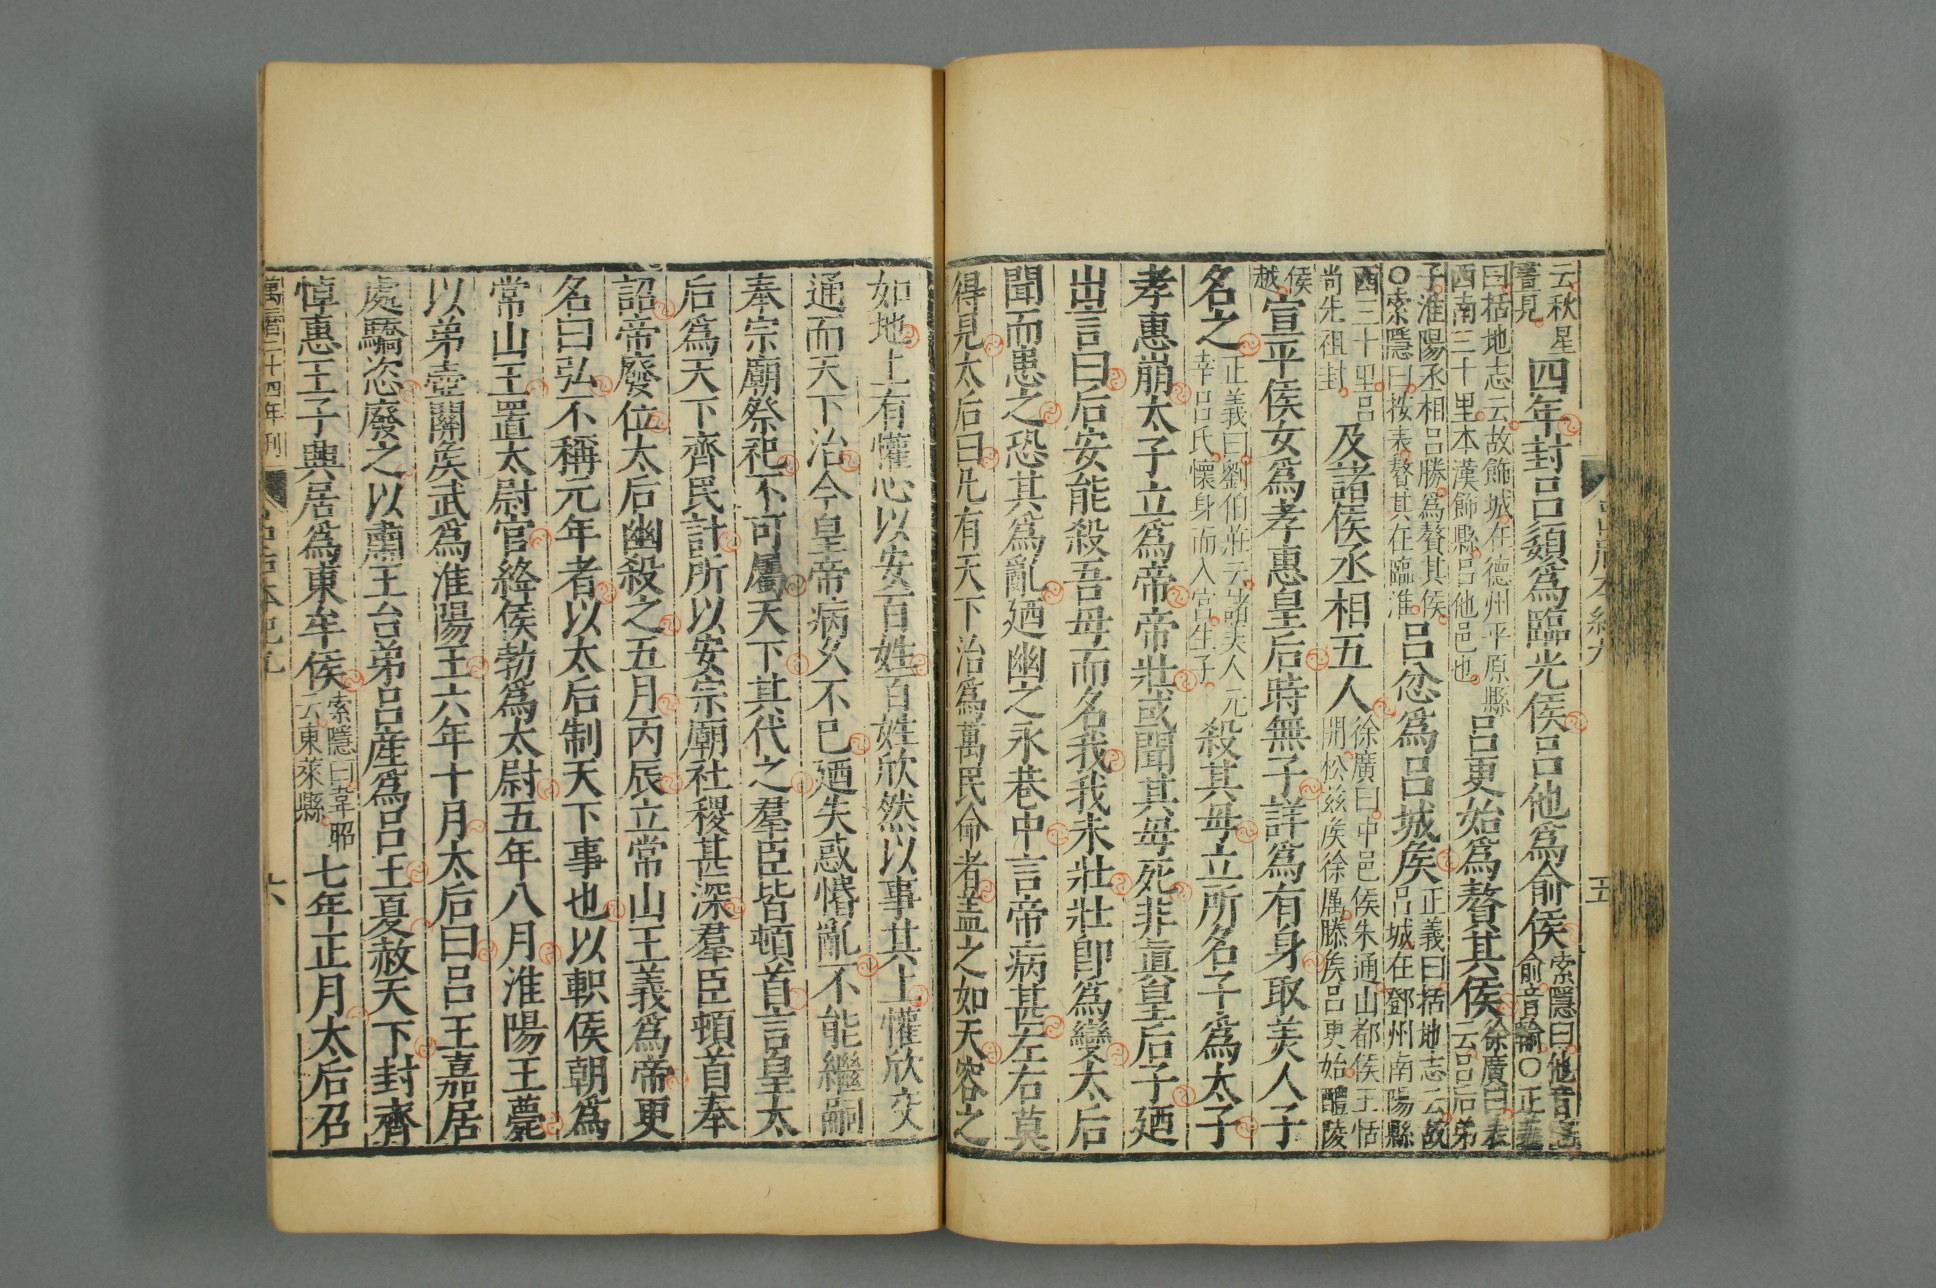 云秋星書見四年封呂嬃爲臨光侯呂他爲俞侯索隱曰他音沱俞音輸○正義
曰括地志云故餙城在德州平原縣西南三十里本漢餙縣呂他邑也呂更始爲贅其侯徐廣曰表云呂后弟
子淮陽丞相呂勝爲贅其侯○索隱曰按表贅其在臨淮呂忿爲呂城矦正義曰括地志云故呂城在鄧州南陽縣
西三十里呂尚先祖封及諸侯丞相五人徐廣曰中邑侯朱通山都侯王恬開松兹矦徐厲滕矦呂更始醴陵
侯越宣平侯女爲孝惠皇后時無子詳爲有身取美人子
名之正義曰劉伯莊云諸美人元幸呂氏懷身而入宮生子殺其母立所名子爲太子
孝惠崩太子立爲帝帝壯或聞其母死非眞皇后子廼
出言曰后安能殺吾母而名我我未壯壯卽爲變太后
聞而患之恐其爲亂廼幽之永巷中言帝病甚左右莫
得見太后曰凡有天下治爲萬民命者蓋之如天容之
五
如地上有懽心以安百姓百姓欣然以事其上懽欣交
通而天下治今皇帝病久不已廼失惑惛亂不能繼嗣
奉宗廟祭祀不可屬天下其代之羣臣皆頓首言皇太
后爲天下齊民計所以安宗廟社稷甚深羣臣頓首奉
詔帝廢位太后幽殺之五月丙辰立常山王義爲帝更
名曰弘不稱元年者以太后制天下事也以軹侯朝爲
常山王置太尉官絳侯勃爲太尉五年八月淮陽王薨
以弟壺關矦武爲淮陽王六年十月太后曰呂王嘉居
處驕恣廢之以肅王台弟呂產爲呂王夏赦天下封齊
悼惠王子興居爲東牟侯索隱曰韋昭云東萊縣七年正月太后召
萬曆二十四年刊 呂后本紀九 六